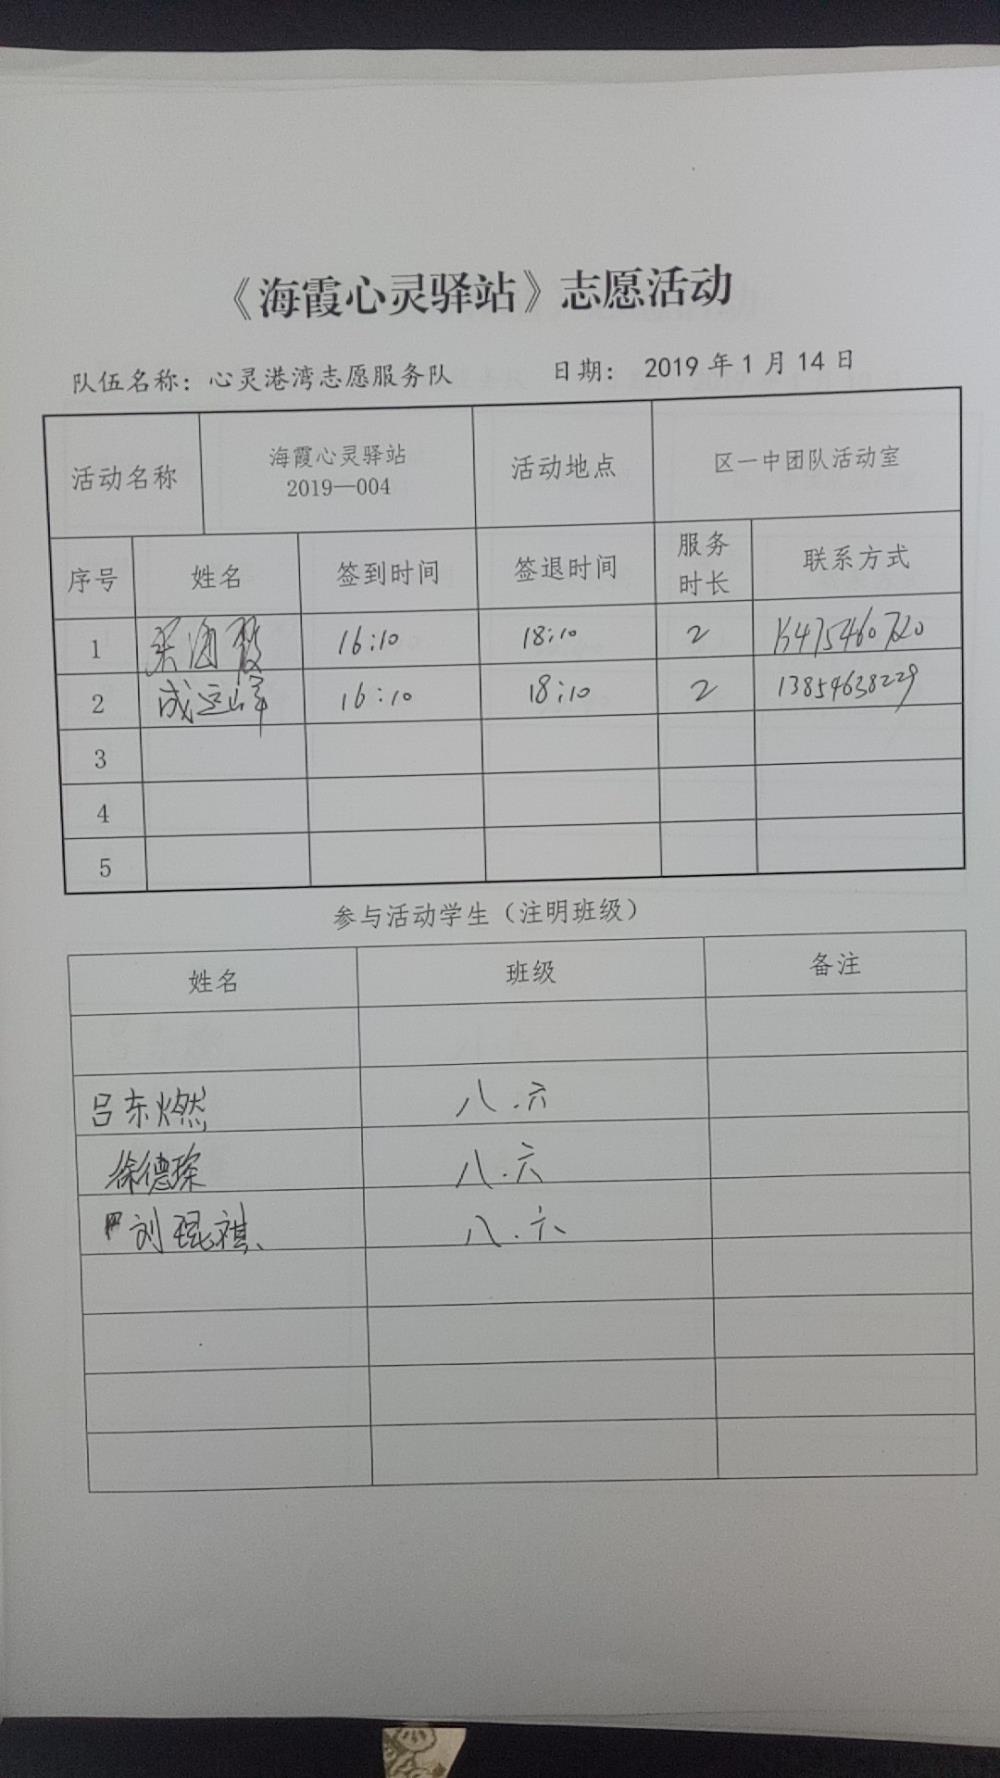 《海霞心灵驿站》志愿活动
队伍名称：心灵港湾志愿服务队 日期： 2019 年 1 月 14 日
活动名称 海霞心灵驿站 2019—004 活动地点 区一中团队活动室
序号 姓名 签到时间 签退时间 服务时长 联系方式
1 海霞 16:10 18:10 2
2 成运峰 16:10 18:10 2 13854638229
3
4
5
参与活动学生（注明班级）
姓名 班级 备注
吕东燃 八.六
徐德琛 八.六
刘琨祺 八.六